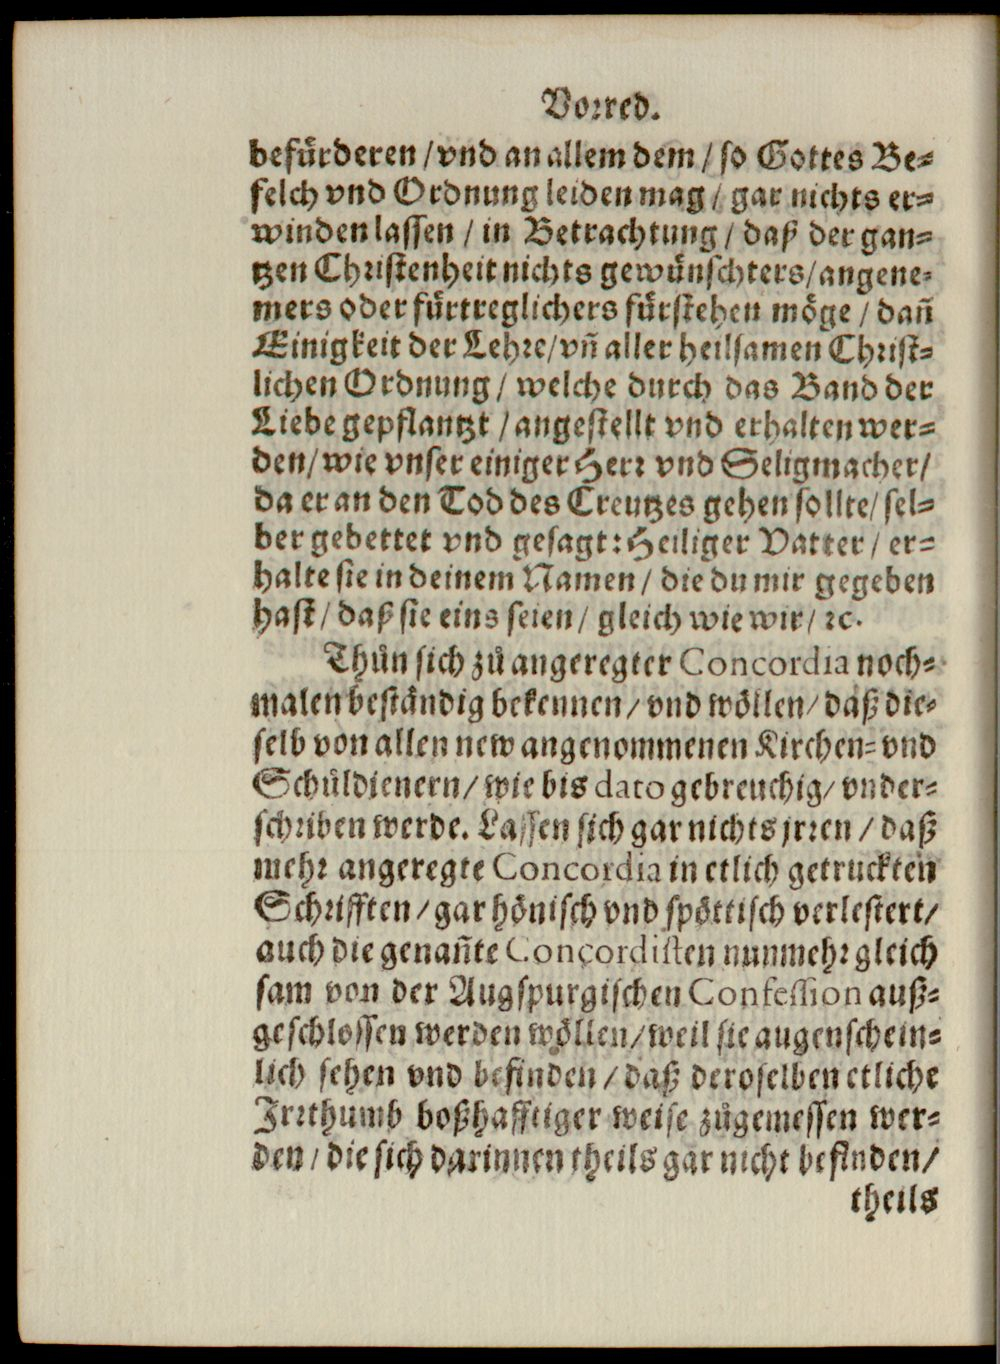 Vorred.
befürderen / vnd an allem dem / so Gottes Be-
felch vnd Ordnung leiden mag / gar nichts er-
winden lassen / in Betrachtung / daß der gan-
tzen Christenheit nichts gewünschters / angene-
mers oder fürtreglichers fürstehen möge / dañ
Einigkeit der Lehre / vñ aller heilsamen Christ-
lichen Ordnung / welche durch das Band der
Liebe gepflantzt / angestellt vnd erhalten wer-
den / wie vnser einiger Herr vnd Seligmacher /
da er an den Tod des Creutzes gehen sollte / sel-
ber gebettet vnd gesagt: Heiliger Vatter / er-
halte sie in deinem Namen / die du mir gegeben
hast / daß sie eins seien / gleich wie wir / ꝛc.
Thůn sich zů angeregter Concordia noch-
malen beständig bekennen / vnd wöllen / daß die-
selb von allen new angenommenen Kirchen- vnd
Schůldienern / wie bis dato gebreuchig / vnder-
schriben werde. Lassen sich gar nichts jrren / daß
mehr angeregte Concordia in etlich getruckten
Schrifften / gar hönisch vnd spöttisch verlestert /
auch die genañte Concordisten nunmehr gleich
sam von der Augspurgischen Confession auß-
geschlossen werden wöllen / weil sie augenschein-
lich sehen vnd befinden / daß deroselben etliche
Irrthumb boßhafftiger weise zůgemessen wer-
den / die sich darinnen theils gar nicht befinden /
theils